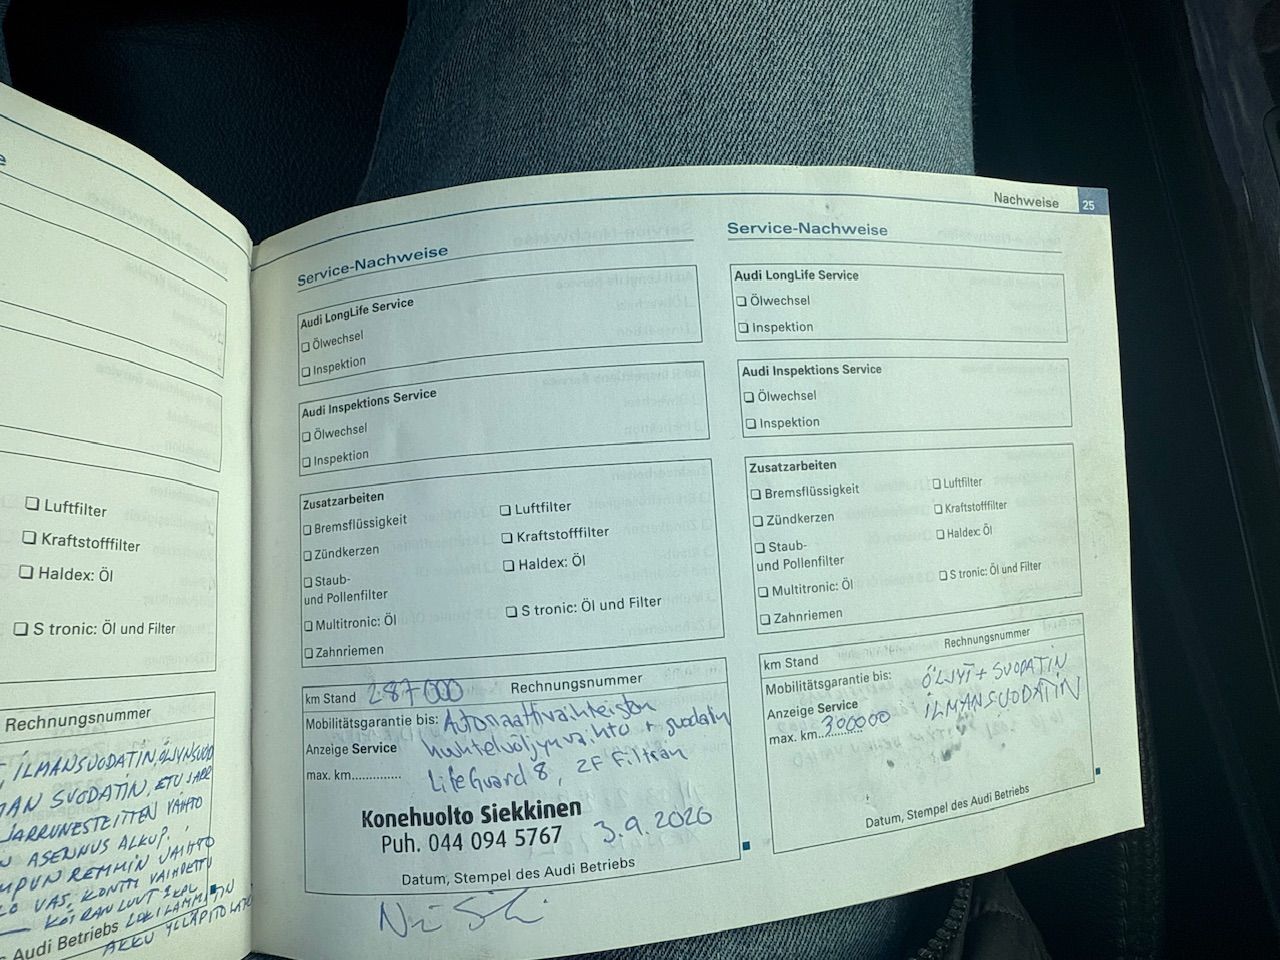 Nachweise 25
Luftfilter
Kraftstofffilter
Haldex: Öl
S tronic: Öl und Filter
Rechnungsnummer
ILMANSUODATIN, ÖLJYNSUOD
MAN SUODATIN, ETU JARR
JARRUNESTEITTEN VAIHTO
ASENNUS ALKUP.
REMMIN VAIHTO
VAIHDETTU
Audi Betriebs
AKKU YLLÄPITO
Service-Nachweise
Audi LongLife Service
Ölwechsel
Inspektion
Audi Inspektions Service
Ölwechsel
Inspektion
Zusatzarbeiten
Bremsflüssigkeit Luftfilter
Zündkerzen Kraftstofffilter
Staub- Haldex: Öl
und Pollenfilter
Multitronic: Öl S tronic: Öl und Filter
Zahnriemen
km Stand 287000 Rechnungsnummer
Mobilitätsgarantie bis: Automaattivaihteiston
Anzeige Service huuhteluöljynvaihto + suodatin
max. km.............. LifeGuard 8, ZF Filtran
Konehuolto Siekkinen
Puh. 044 094 5767 3.9.2020
Datum, Stempel des Audi Betriebs
Service-Nachweise
Audi LongLife Service
Ölwechsel
Inspektion
Audi Inspektions Service
Ölwechsel
Inspektion
Zusatzarbeiten
Bremsflüssigkeit Luftfilter
Zündkerzen Kraftstofffilter
Staub- Haldex: Öl
und Pollenfilter
Multitronic: Öl S tronic: Öl und Filter
Zahnriemen
km Stand Rechnungsnummer
Mobilitätsgarantie bis: ÖLJYT + SUODATIN
Anzeige Service ILMANSUODATIN
max. km 300000
Datum, Stempel des Audi Betriebs